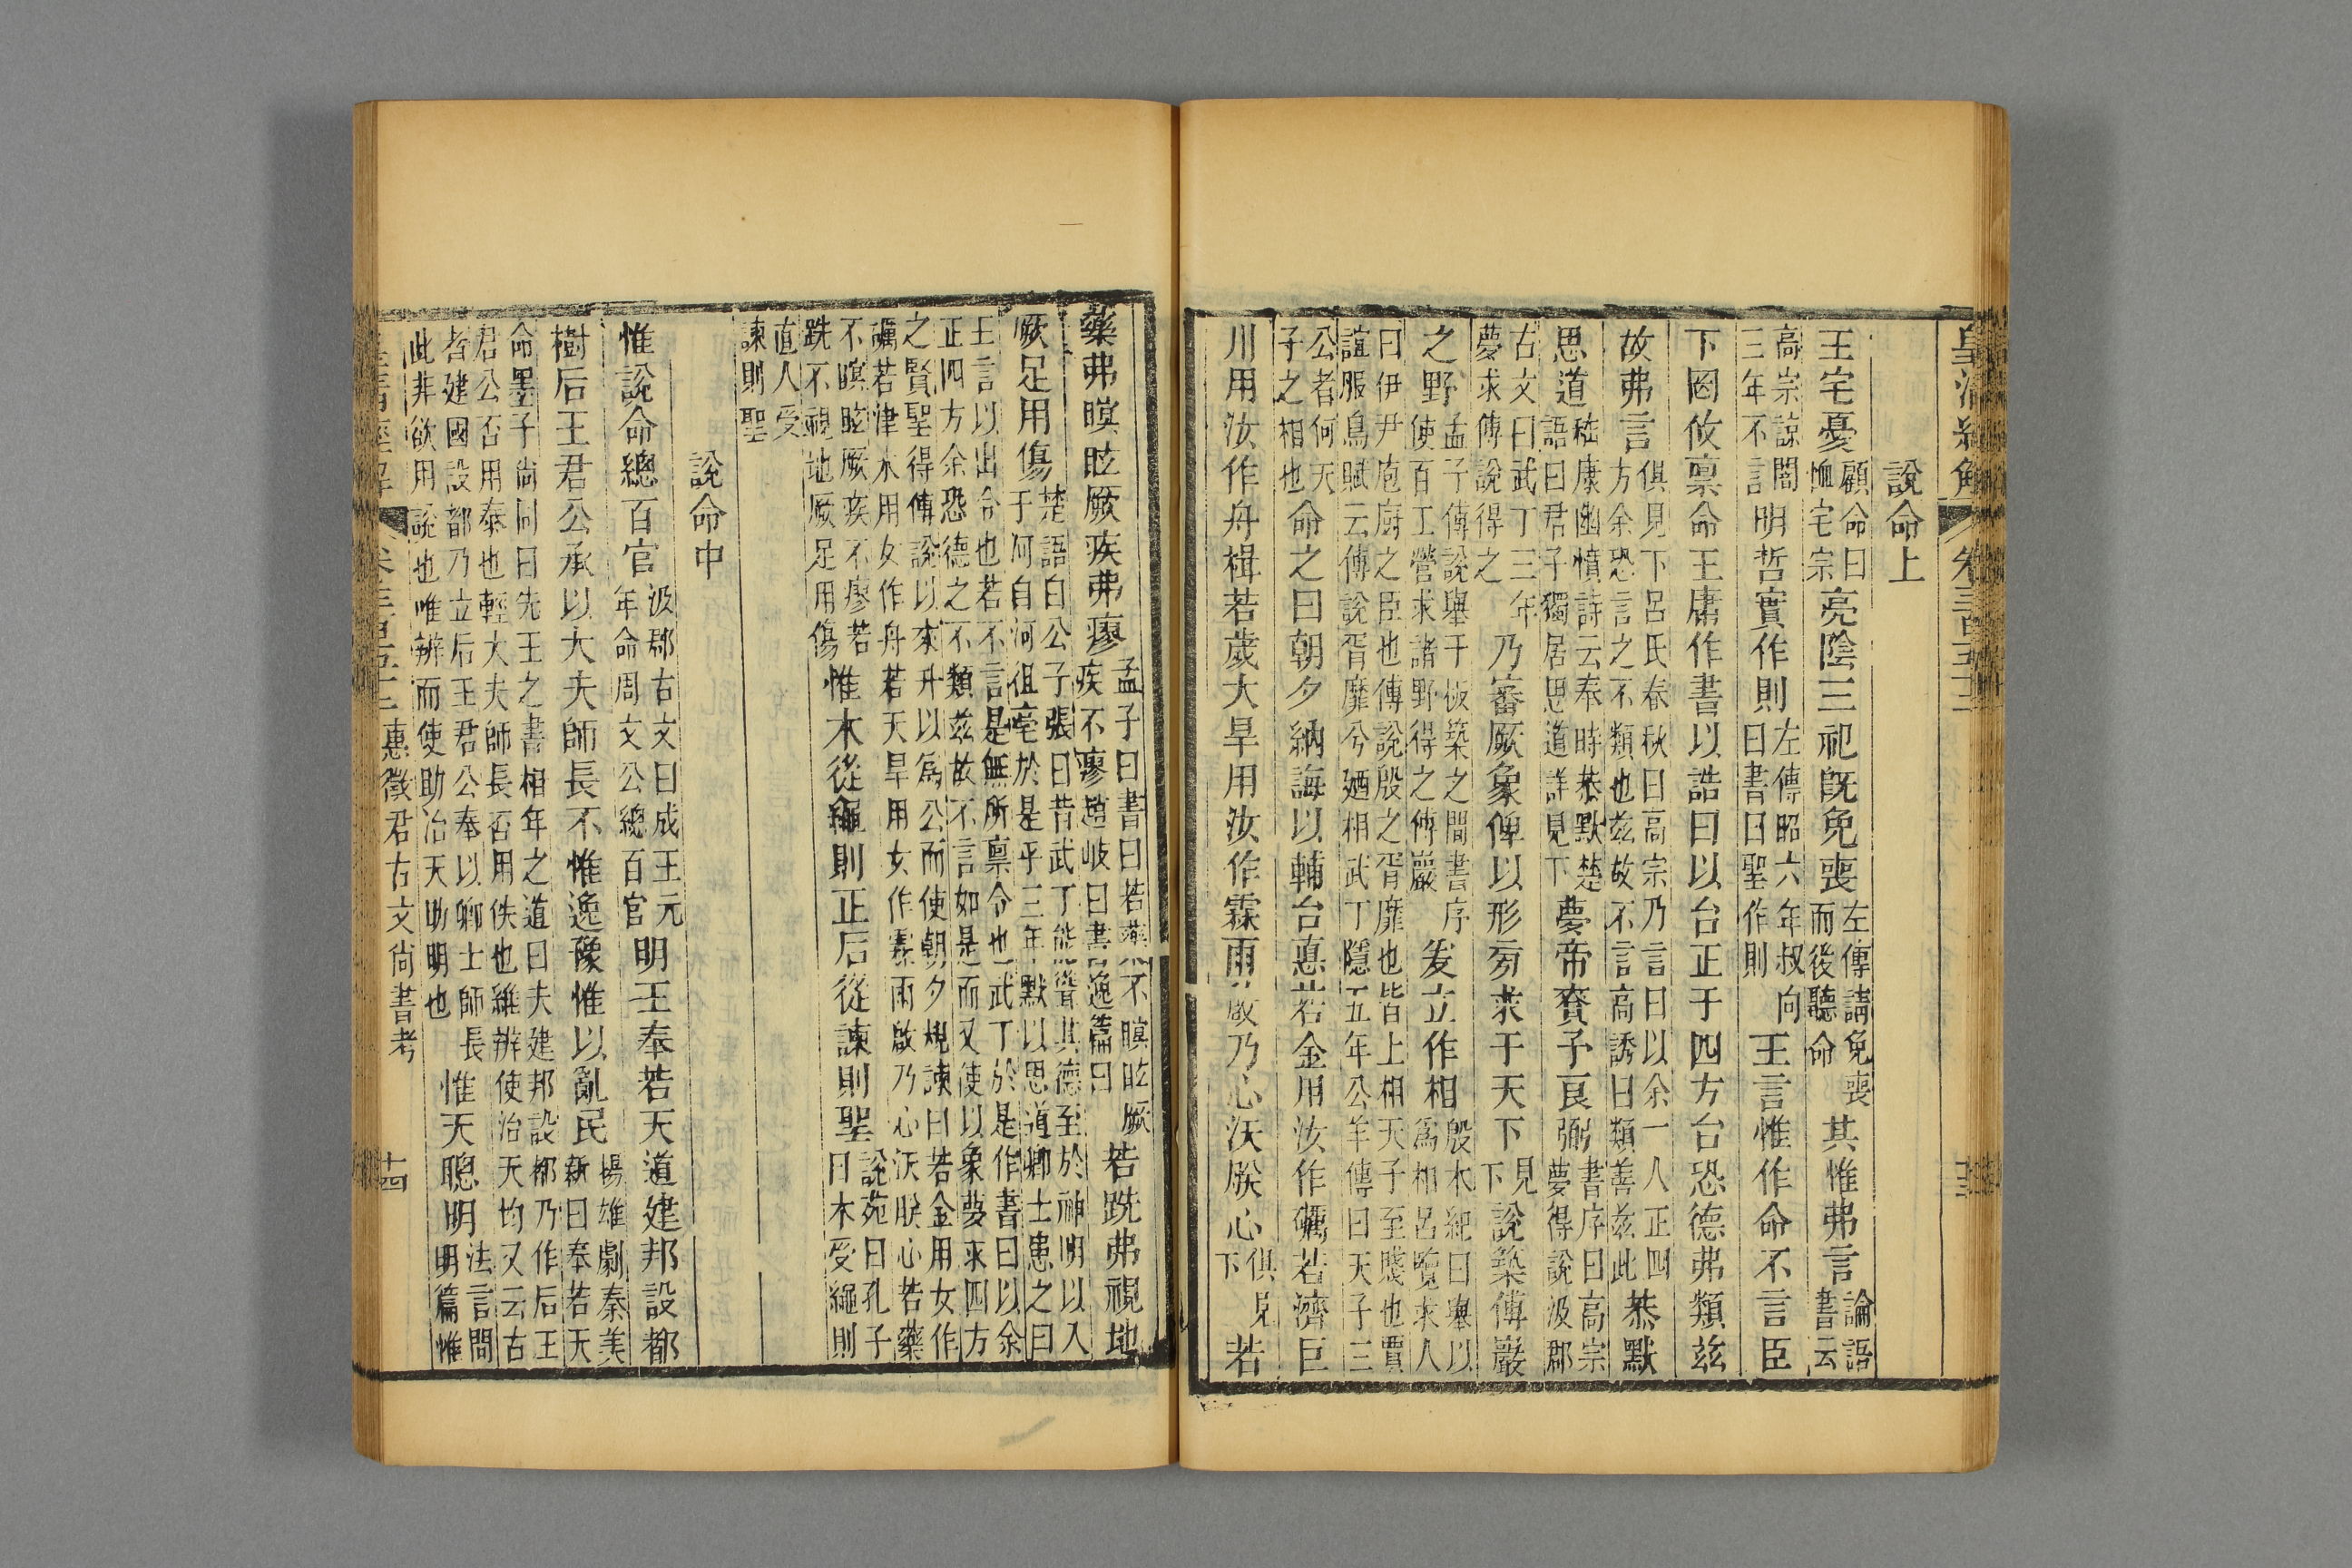 說命上
王宅憂顧命曰恤宅宗亮陰三祀旣免喪左傳請免喪而後聽命其惟弗言論語書云
高宗諒闇三年不言明哲實作則左傳昭六年叔向曰書曰聖作則王言惟作命不言臣
下罔攸禀命王庸作書以誥曰以台正于四方台恐德弗類兹
故弗言俱見下呂氏春秋曰高宗乃言曰以余一人正四方余恐言之不類也兹故不言高誘曰類善兹此恭默
思道嵇康幽憤詩云奉時恭默楚語曰君子獨居思道詳見下夢帝賚予良弼書序曰高宗夢得說汲郡
右文曰武丁三年夢求傅說得之乃審厥象俾以形旁求于天下見下說築傅巖
之野孟子傅說舉于板築之間書序使百工營求諸野得之傅巖爰立作相殷本紀曰舉以爲相呂覽求人
曰伊尹庖廚之臣也傅說殷之胥靡也皆上相天子至賤也賈誼服鳥賦云傅說胥靡兮廼相武丁隱五年公羊傳曰天子三
公者何天子之相也命之曰朝夕納誨以輔台惪若金用汝作礪若濟巨
川用汝作舟楫若歲大旱用汝作霖雨啟乃心沃朕心俱見下若
藥弗瞑眩厥疾弗瘳孟子曰書曰若藥不瞑眩厥疾不瘳趙岐曰書逸篇曰若跣弗視地
厥足用傷楚語白公子張曰昔武丁能聳其德至於神明以入于河自河徂亳於是乎三年默以思道卿士患之曰
王言以出令也若不言是無所禀令也武丁於是作書曰以余正四方余恐德之不類兹故不言如是而又使以象夢求四方
之賢聖得傅說以來升以爲公而使朝夕規諫曰若金用女作礪若津水用女作舟若天旱用女作霖雨啟乃心沃朕心若藥
不瞑眩厥疾不瘳若跣不視地厥足用傷惟木從繩則正后從諫則聖說苑曰孔子曰木受繩則
直人受諫則聖
說命中
惟說命總百官汲郡古文曰成王元年命周文公總百官明王奉若天道建邦設都
樹后王君公承以大夫師長不惟逸豫惟以亂民揚雄劇秦美新曰奉若天
命墨子尚同曰先王之書相年之道曰夫建邦設都乃作后王君公否用泰也輕大夫師長否用佚也維辨使治天均又云古
者建國設都乃立后王君公奉以卿士師長此非欲用說也唯辨而使助治天助明也惟天聰明法言問明篇惟
惠徵君古文尚書考
十四